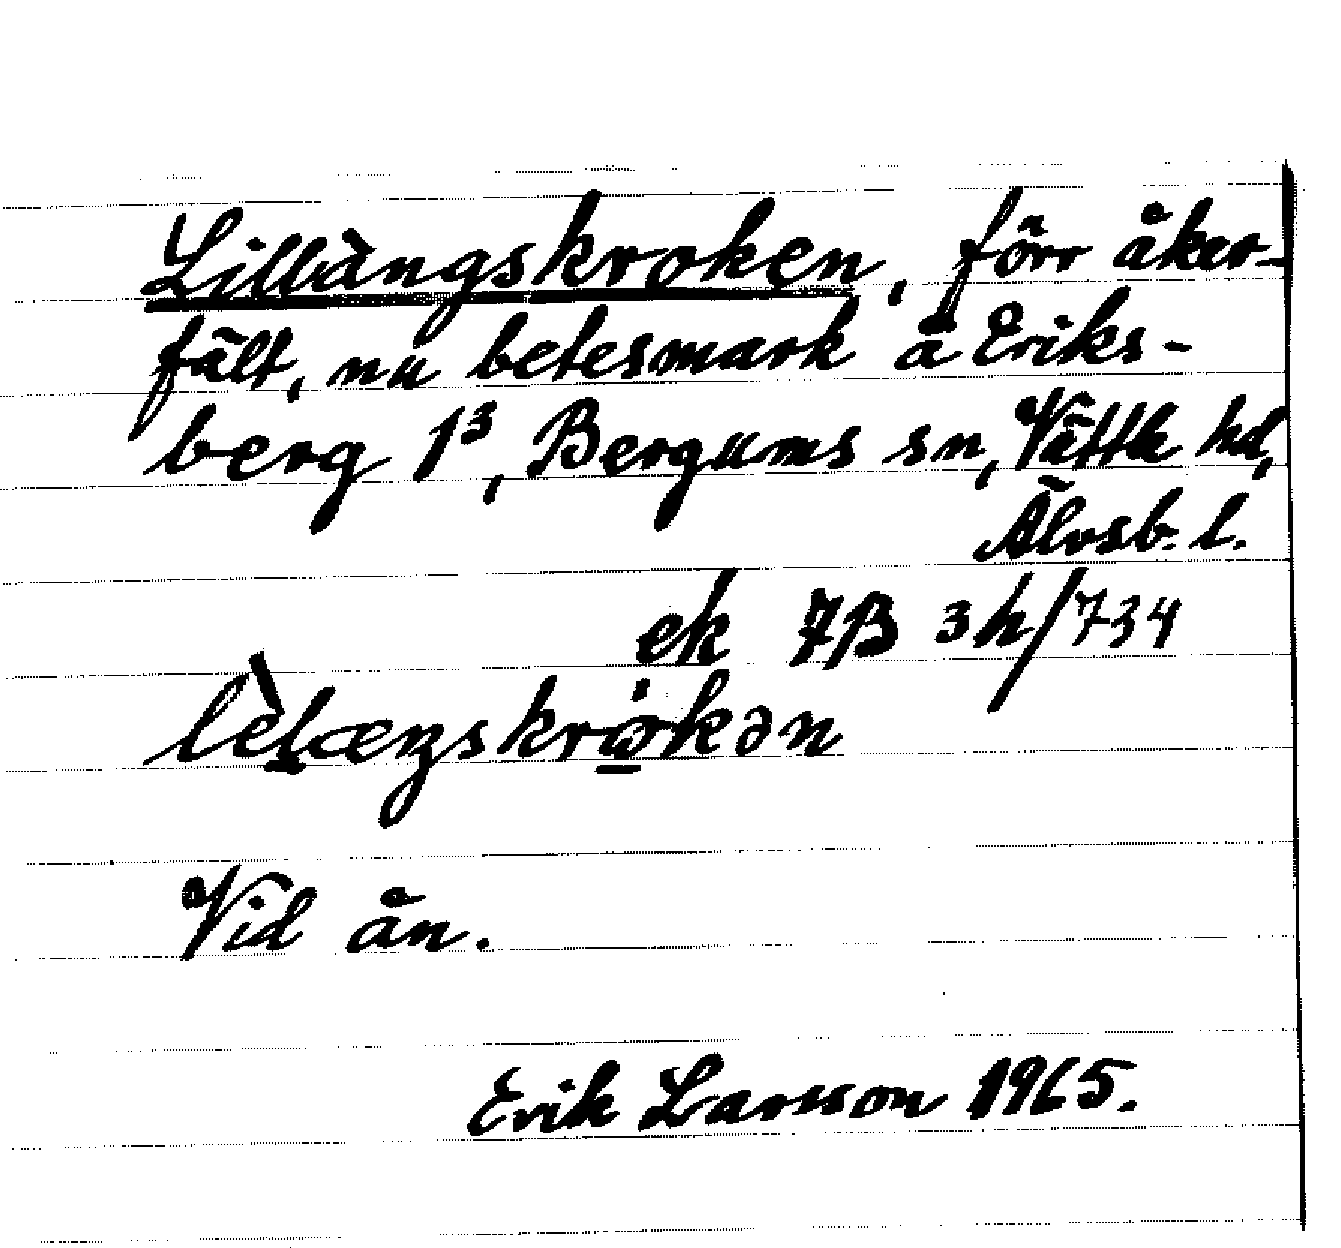 Lillängskroken, förr åker-
fält, nu betesmark å Eriks-
berg 1³, Bergums sn, Vättle hd,
Älvsb. l.
ek 7B 3h/734
Vid ån.
Erik Larsson 1965.